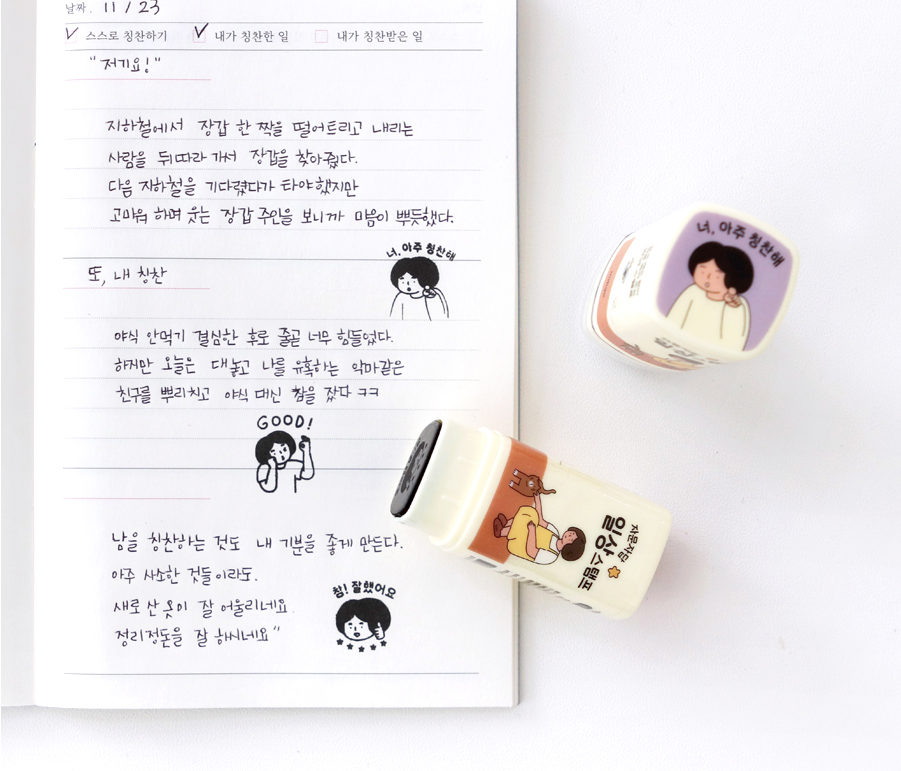 날짜. 11 / 23
스스로 칭찬하기 내가 칭찬한 일 내가 칭찬받은 일
"저기요!"
지하철에서 장갑 한 짝을 떨어트리고 내리는
사람을 뒤따라 가서 장갑을 찾아줬다.
다음 지하철을 기다렸다가 타야했지만
고마워 하며 웃는 장갑 주인을 보니까 마음이 뿌듯했다.
너, 아주 칭찬해
또, 내 칭찬
야식 안먹기 결심한 후로 줄곧 너무 힘들었다.
하지만 오늘은 대놓고 나를 유혹하는 악마같은
친구를 뿌리치고 야식 대신 잠을 잤다 ㅋㅋ
GOOD!
남을 칭찬하는 것도 내 기분을 좋게 만든다.
아주 사소한 것들이라도.
새로 산 옷이 잘 어울리네요
정리정돈을 잘 하시네요"
참! 잘했어요
너, 아주 칭찬해
자문자답
일상스탬프